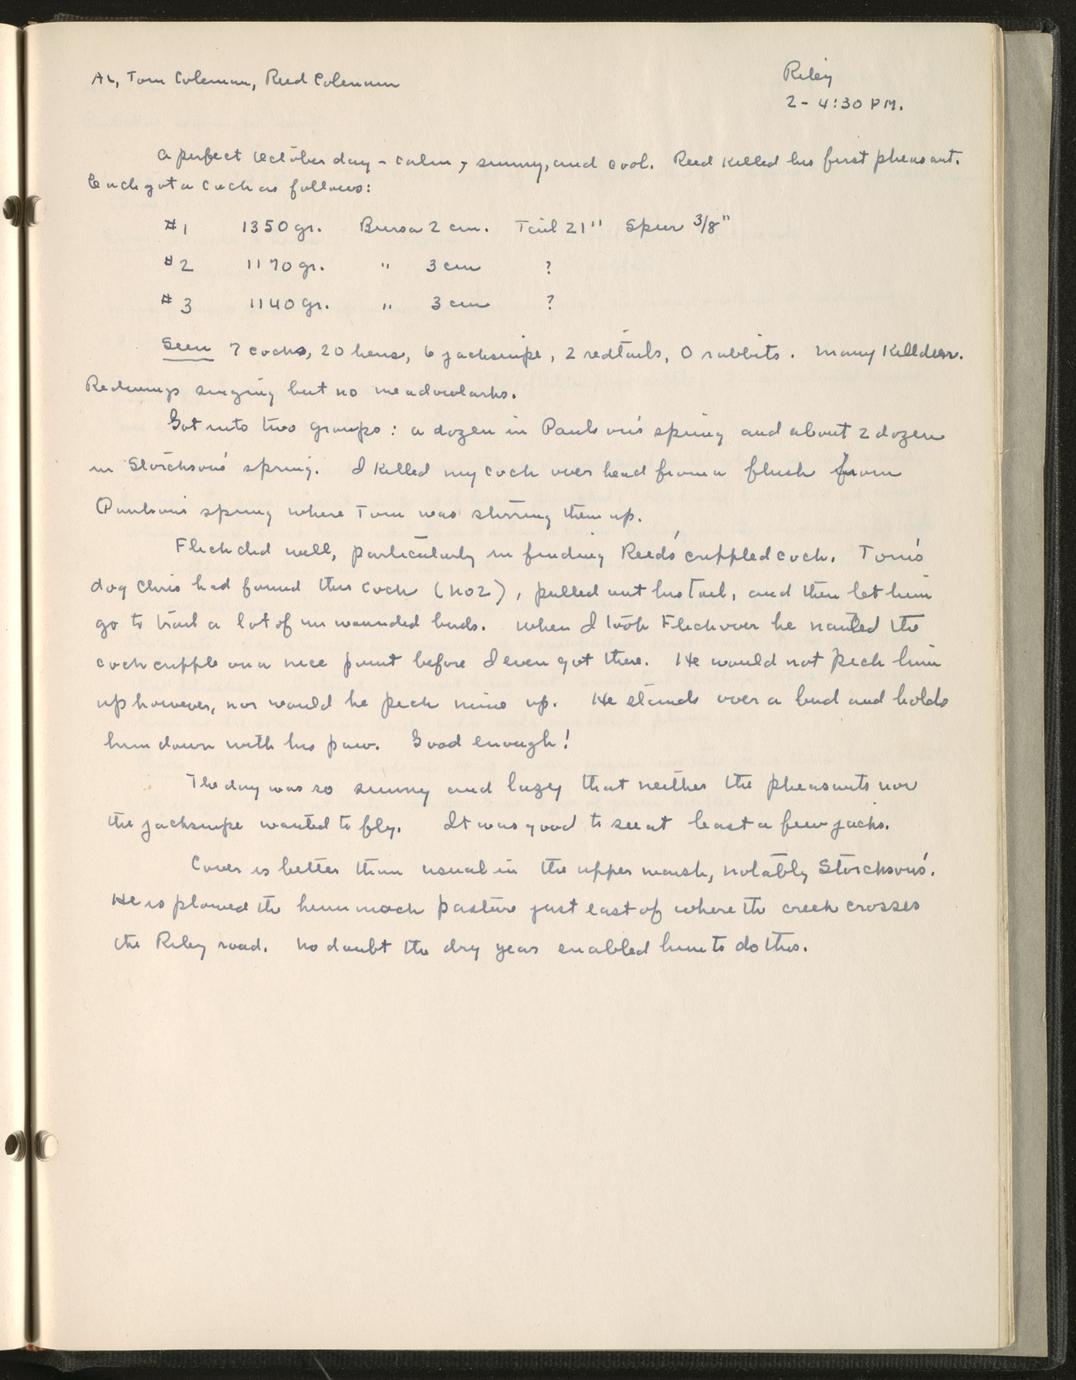 AL, Tom Coleman, Reed Coleman
Riley
2 - 4:30 PM.
A perfect October day - calm, sunny, and cool. Reed killed his first pheasant.
Each got a cock as follows:
#1 1350 gr. Bursa 2 cm. Tail 21" Spur 3/8"
#2 1170 gr. " 3 cm ?
#3 1140 gr. " 3 cm ?
Seen 7 cocks, 20 hens, 6 jacksnipe, 2 redtails, 0 rabbits. Many Killdeer.
Redwings singing but no meadowlarks.
Got into two groups: a dozen in Paulson's spring and about 2 dozen
in Storckson's spring. I killed my cock over head from a flush from
Paulson's spring where Tom was stirring them up.
Flick did well, particularly in finding Reed's crippled cock. Tom's
dog Chris had found this cock (No 2), pulled out his tail, and then let him
go to trail a lot of unwounded birds. When I took Flick over he nailed the
cock cripple on a nice point before I even got there. He would not pick him
up however, nor would he pick mine up. He stands over a bird and holds
him down with his paw. Good enough!
The day was so sunny and lazy that neither the pheasants nor
the jacksnipe wanted to fly. It was good to see at least a few jacks.
Cover is better than usual in the upper marsh, notably Storckson's.
He is plowed the hummock pasture just east of where the creek crosses
the Riley road. No doubt the dry year enabled him to do this.